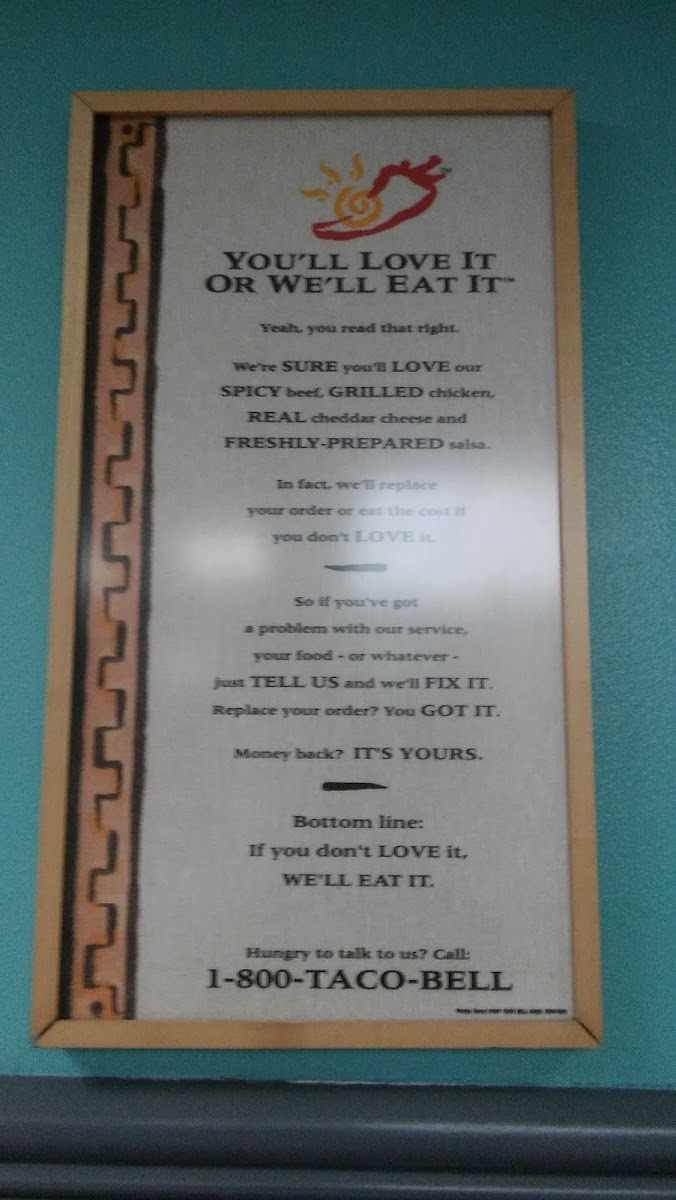 YOU'LL LOVE IT
OR WE'LL EAT IT™
Yeah, you read that right.
We're SURE you'll LOVE our
SPICY beef, GRILLED chicken,
REAL cheddar cheese and
FRESHLY-PREPARED salsa.
In fact, we'll replace
your order or eat the cost if
you don't LOVE it.
So if you've got
a problem with our service,
your food - or whatever -
just TELL US and we'll FIX IT.
Replace your order? You GOT IT.
Money back? IT'S YOURS.
Bottom line:
If you don't LOVE it,
WE'LL EAT IT.
Hungry to talk to us? Call:
1-800-TACO-BELL